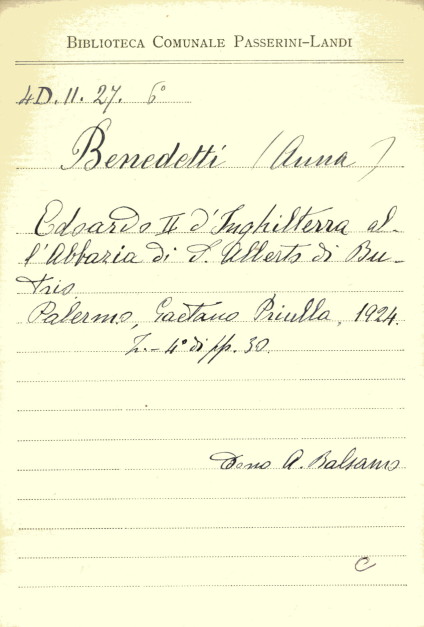 BIBLIOTECA COMUNALE PASSERINI-LANDI
4D.II.27. 6°
Benedetti (Anna)
Edoardo II d'Inghilterra al-
l'Abbazia di S. Alberto di Bu-
trio
Palermo, Gaetano Priulla, 1924.
4° di pp. 30.
Dono A. Balsamo
C